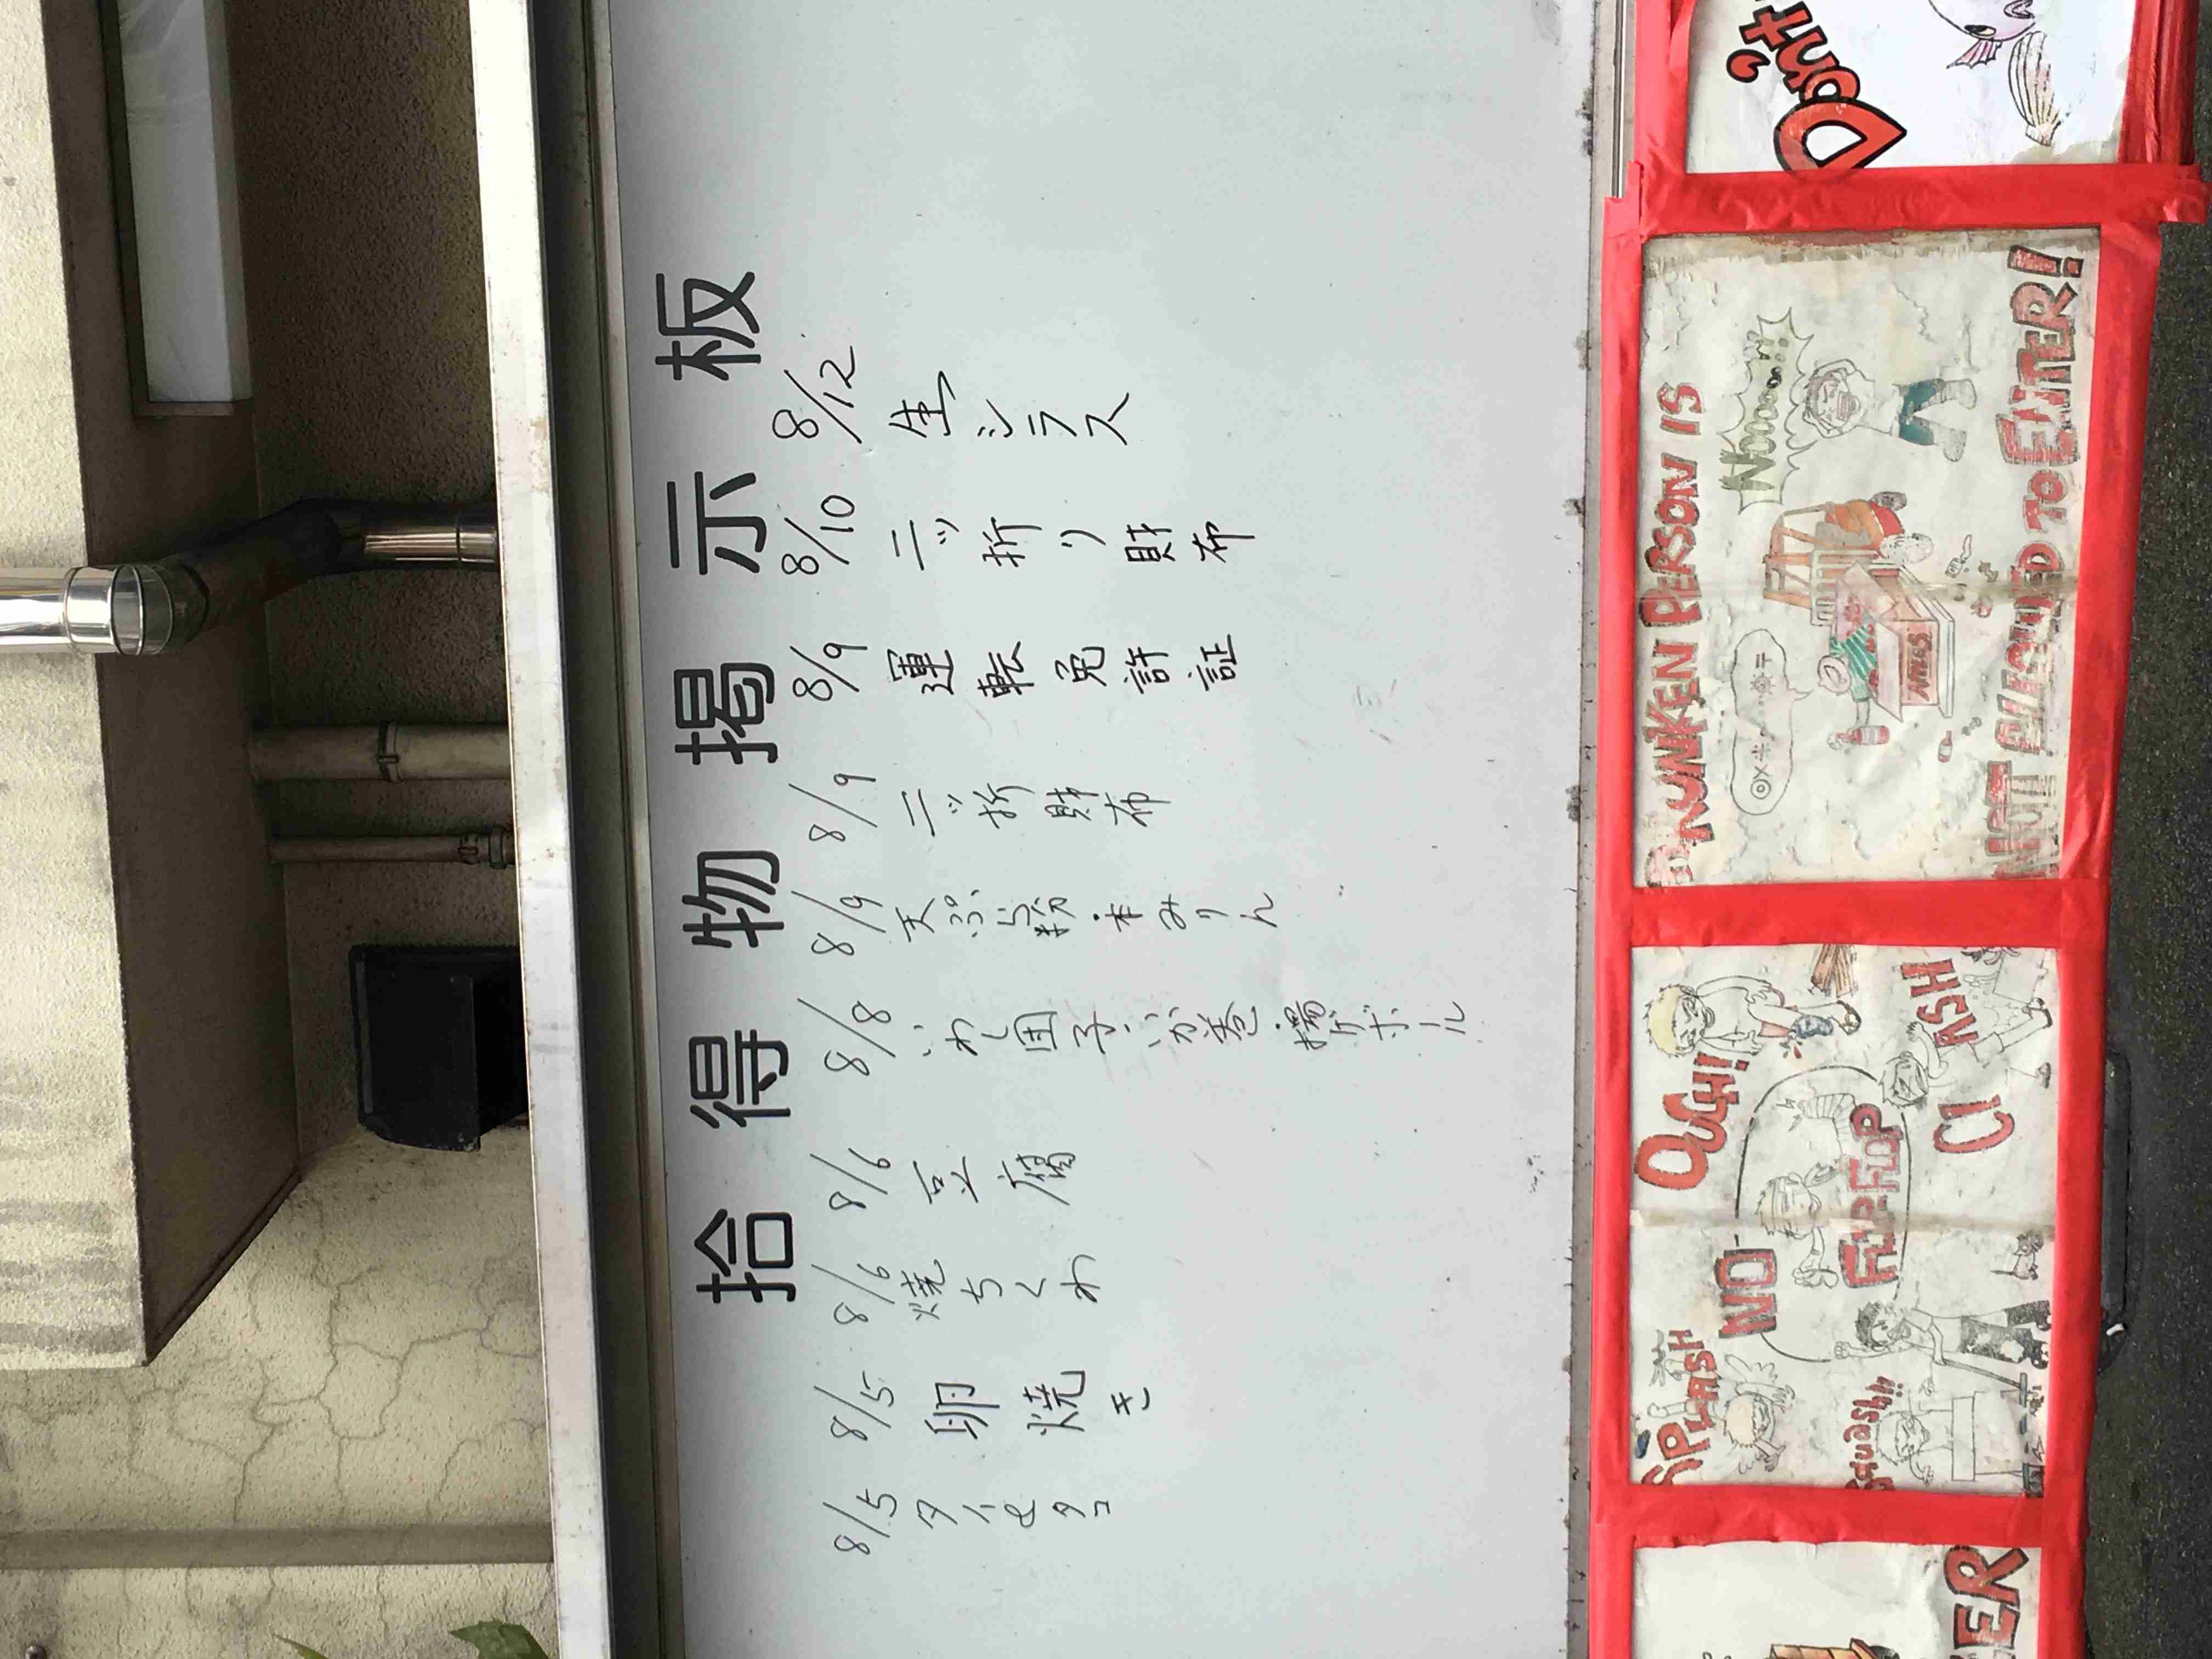 拾得物掲示板
8/12
生シラス
8/10
二ッ折り財布
8/9
運転免許証
8/9
二ッ折財布
8/9
天ぷら粉・本みりん
8/8
いわし団子・いか巻・揚げボール
8/6
豆腐
8/6
焼ちくわ
8/5
卵焼き
8/5
タイとタコ
SPLASH
OUCH!
NO
FLIP-FLOP
Squash!!
DRUNKEN PERSON IS
Nooooo!!!
NOT ALLOWED TO ENTER!
Don't